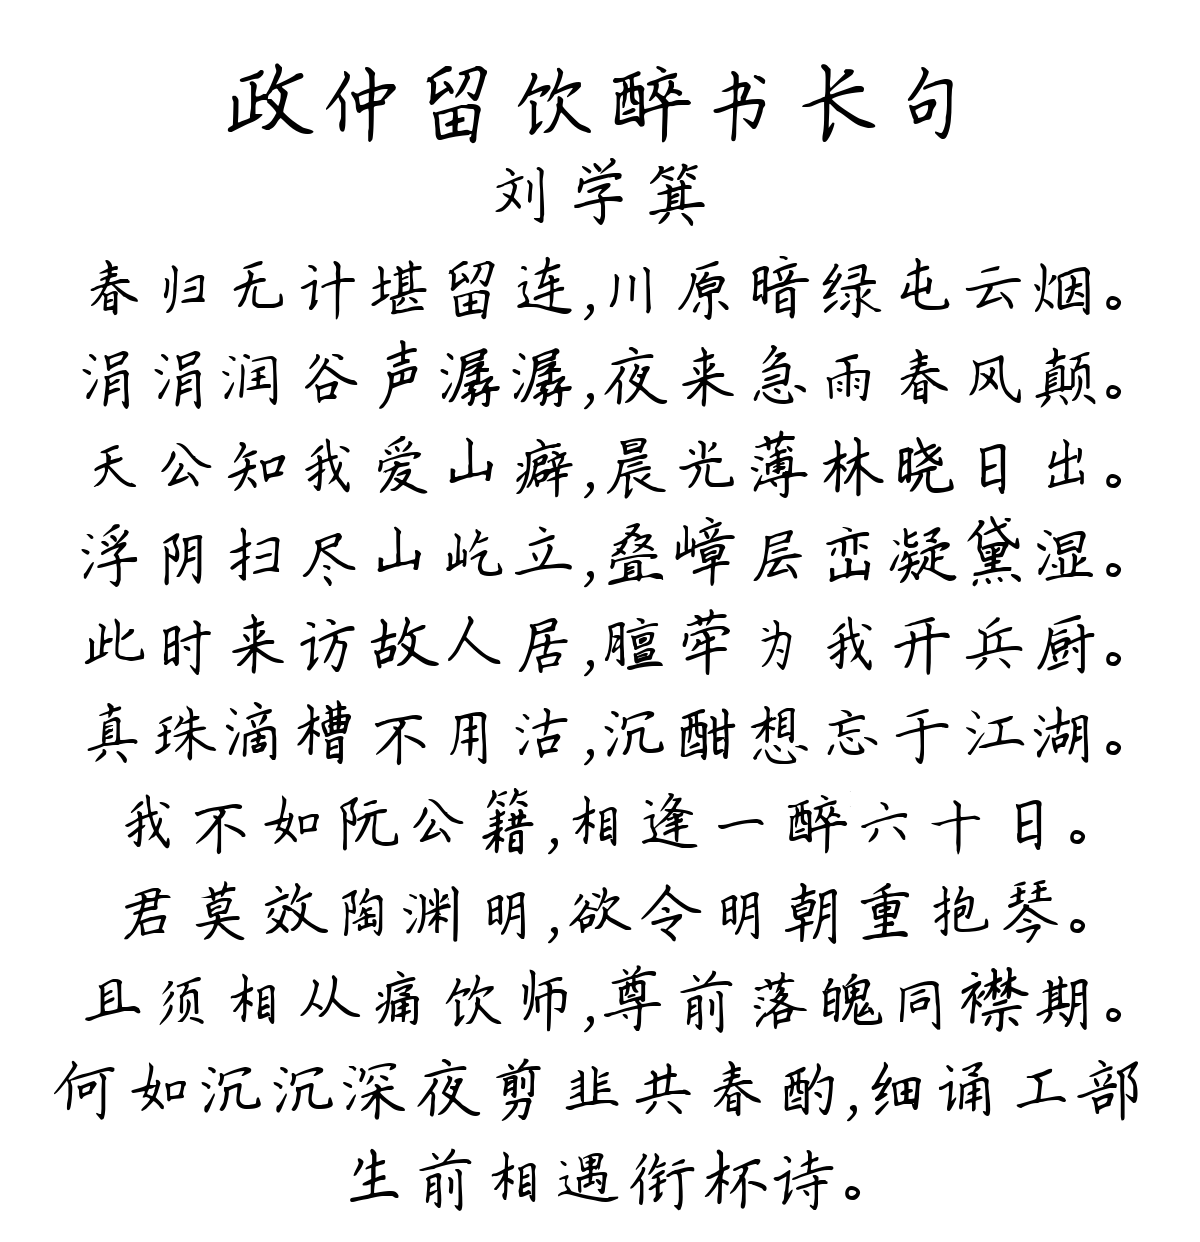 政仲留饮醉书长句
刘学箕
春归无计堪留连,川原暗绿屯云烟。
涓涓润谷声潺潺,夜来急雨春风颠。
天公知我爱山癖,晨光薄林晓日出。
浮阴扫尽山屹立,叠嶂层峦凝黛湿。
此时来访故人居,膻荤为我开兵厨。
真珠滴槽不用沽,沉酣想忘于江湖。
我不如阮公籍,相逢一醉六十日。
君莫效陶渊明,欲令明朝重抱琴。
且须相从痛饮师,尊前落魄同襟期。
何如沉沉深夜剪韭共春酌,细诵工部
生前相遇衔杯诗。